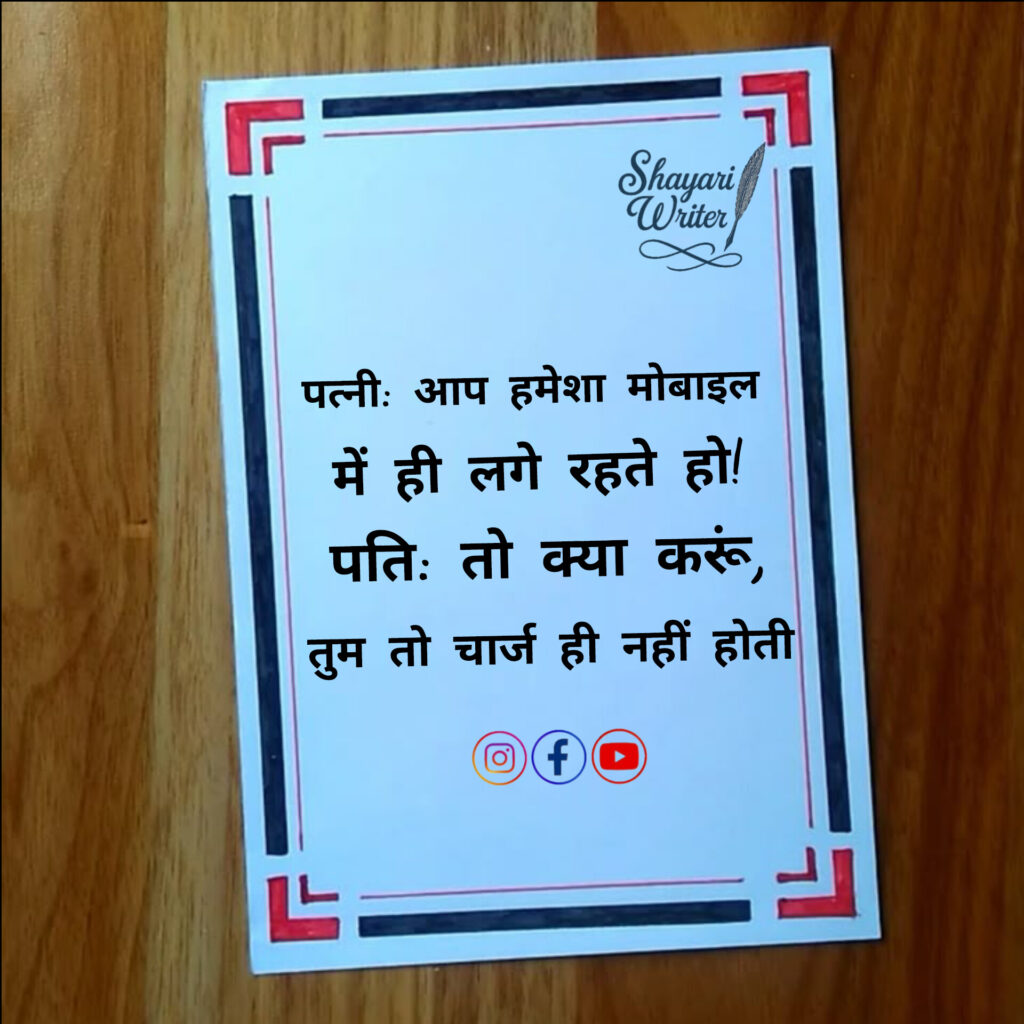 Shayari
Writer
पत्नी: आप हमेशा मोबाइल
में ही लगे रहते हो!
पति: तो क्या करूं,
तुम तो चार्ज ही नहीं होती